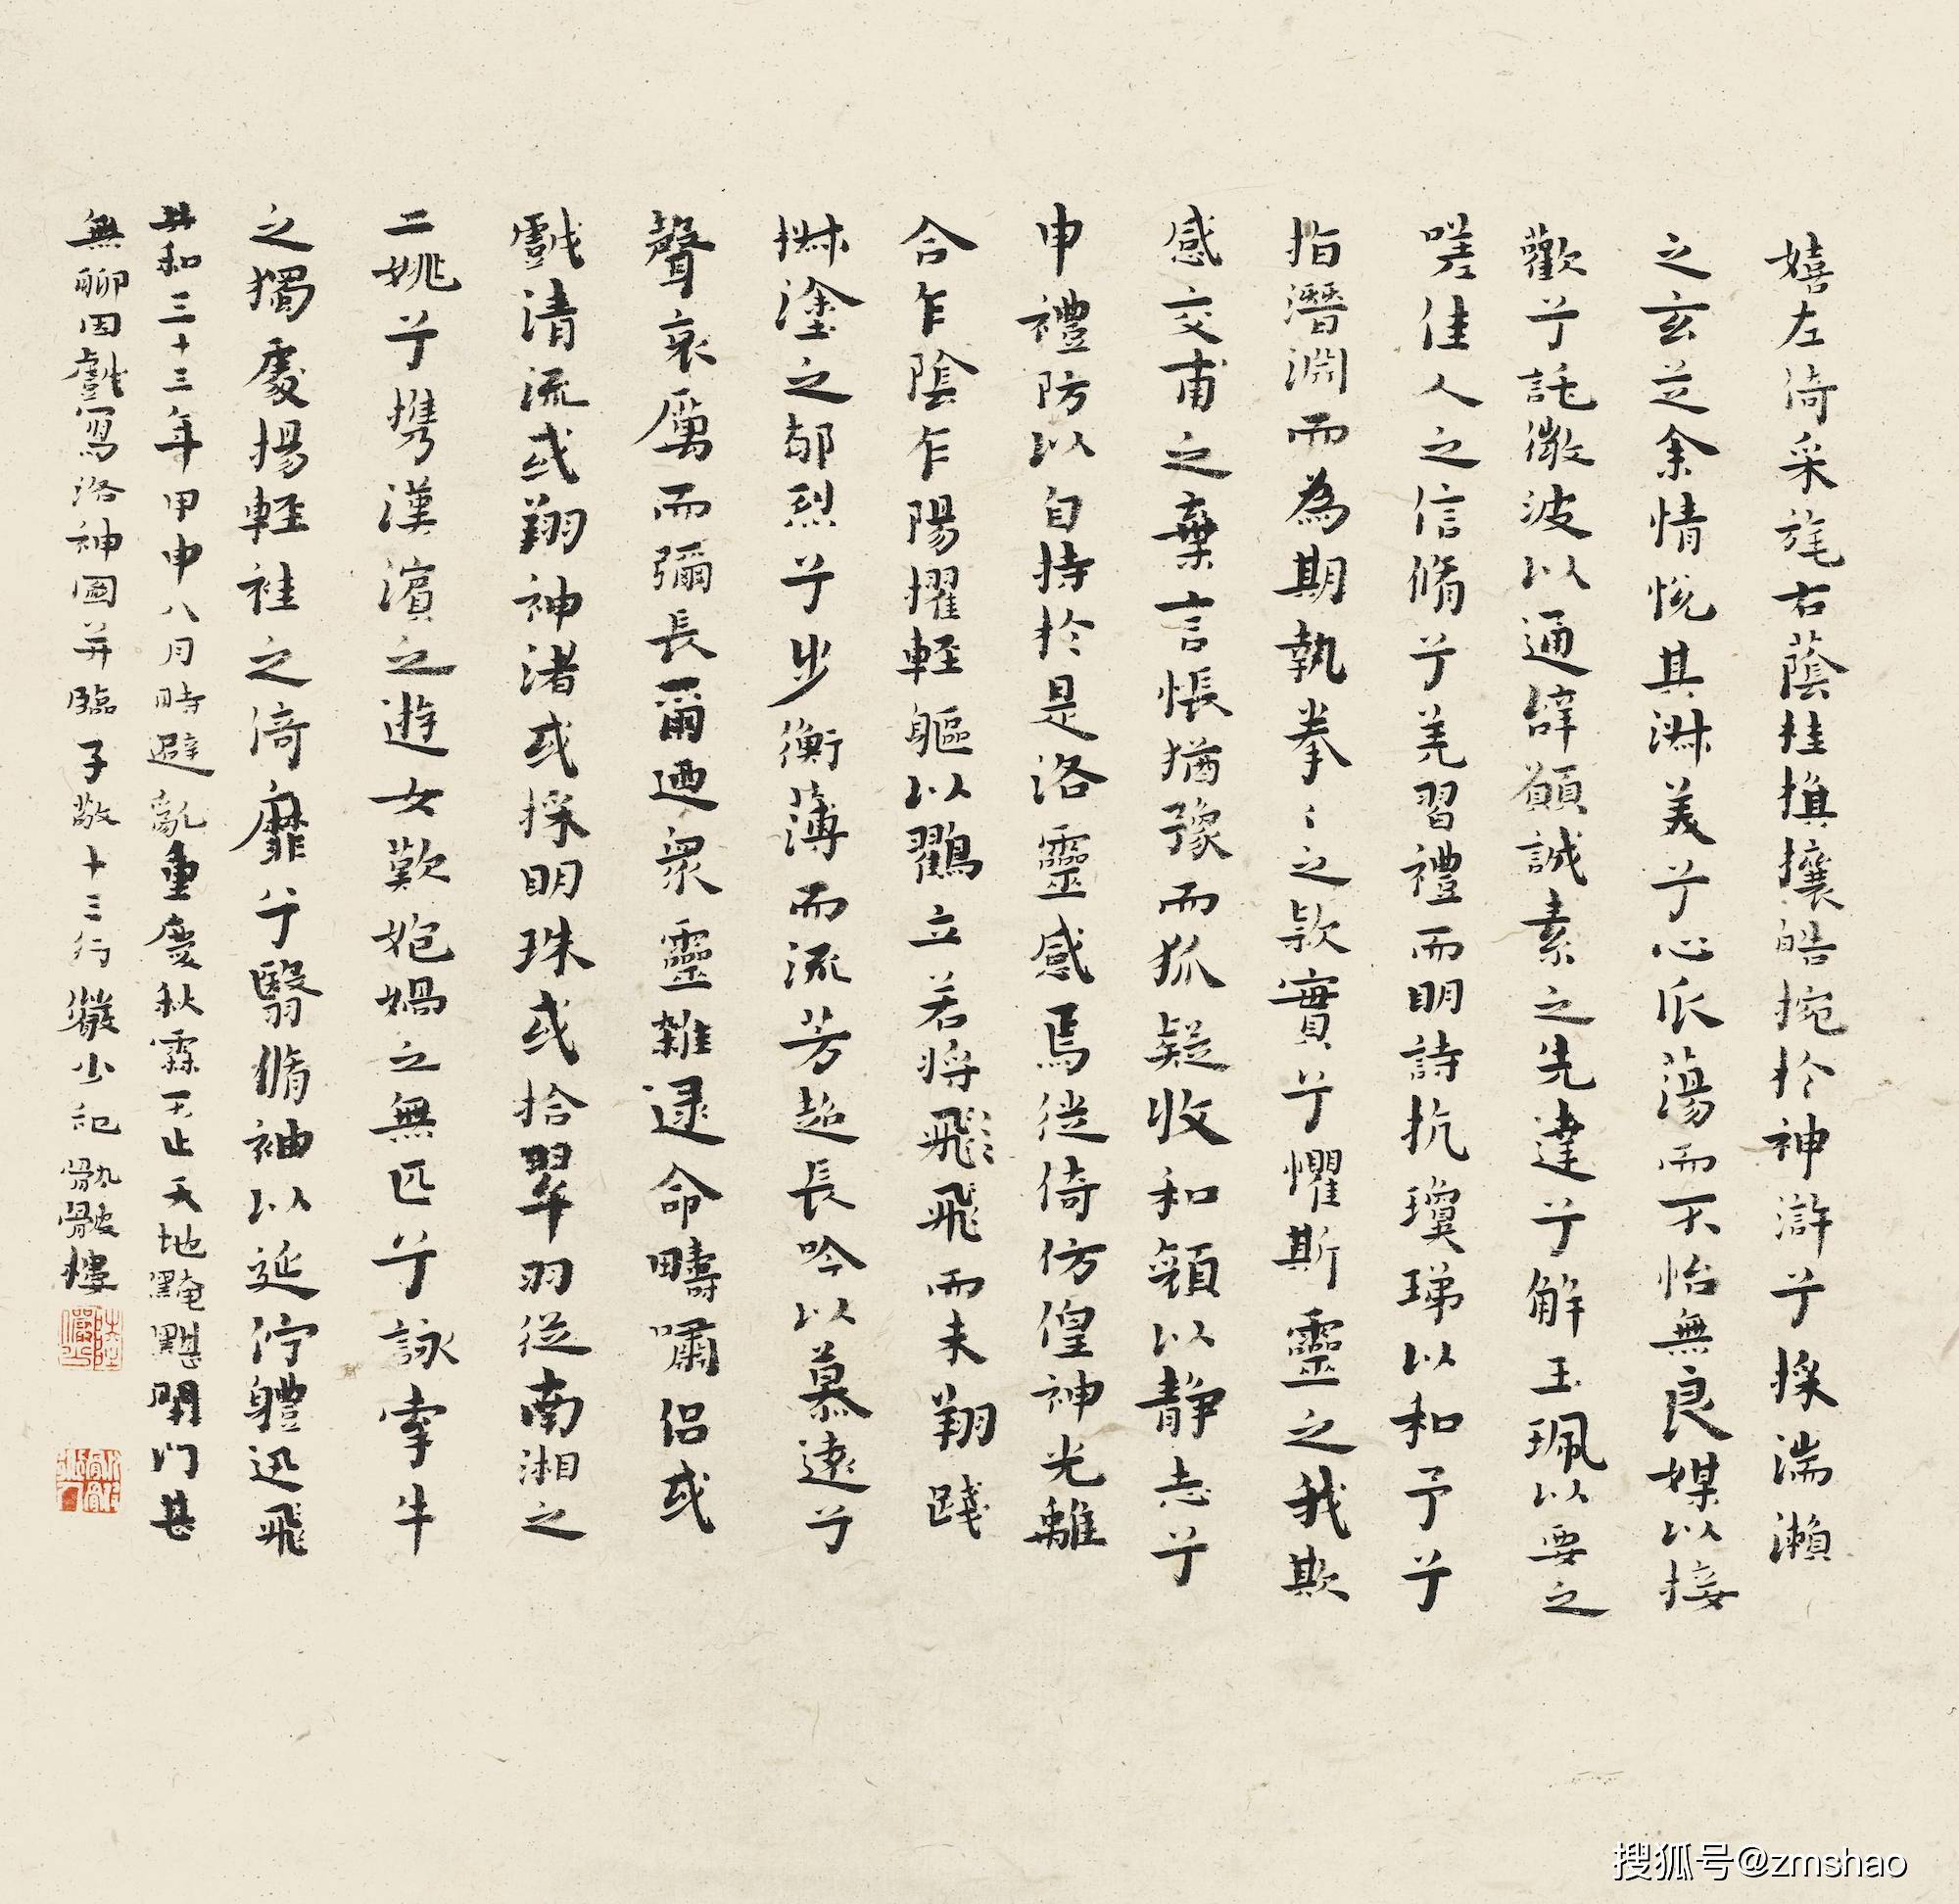 嬉左倚采旄右蔭桂旗攘皓捥於神滸兮採湍瀨
之玄芝余情悅其淋美兮心爪蕩而不怡無良媒以接
歡兮託微波以通辭願誠素之先達兮解玉珮以要之
嗟佳人之信脩兮羌習禮而明詩抗瓊珶以和予兮
指潛淵而為期執拳〻之款實兮懼斯靈之我欺
感交甫之棄言悵猶豫而狐疑收和顏以静志兮
申禮防以自持於是洛靈感焉徙倚仿偟神光離
合乍陰乍陽擢輕軀以鸛立若將飛飛而未翔踐
椒塗之郁烈兮步衡薄而流芳超長吟以慕遠兮
聲哀厲而彌長爾迺衆靈雜逮命疇嘯侣或
戲清流或翔神渚或採明珠或拾翠羽從南湘之
二姚兮攜漢濱之遊女歎㚿媧之無匹兮詠牽牛
之獨處揚輕袿之倚靡兮翳脩袖以延佇體迅飛
共和三十三年甲申八月時避亂重慶秋霖不止天地黤黮閉門甚
無聊因戲寫洛神圖并臨子敬十三行儼少記骫骳樓
搜狐号@zmshao